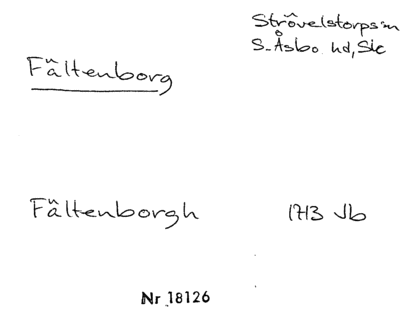 Strövelstorps sn
S. Åsbo hd, Sk
Fältenborg
Fältenborgh 1713 Jb
Nr 18126